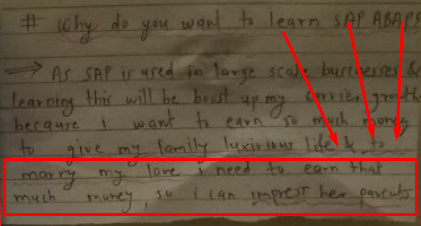 # Why do you want to learn SAP ABAP?
⇒ As SAP is used in large scale businesses &
learning this will be boost up my carrier growth
because i want to earn so much money
to give my family luxirious life & to
marry my love i need to earn that
much money, so i can impress her parents